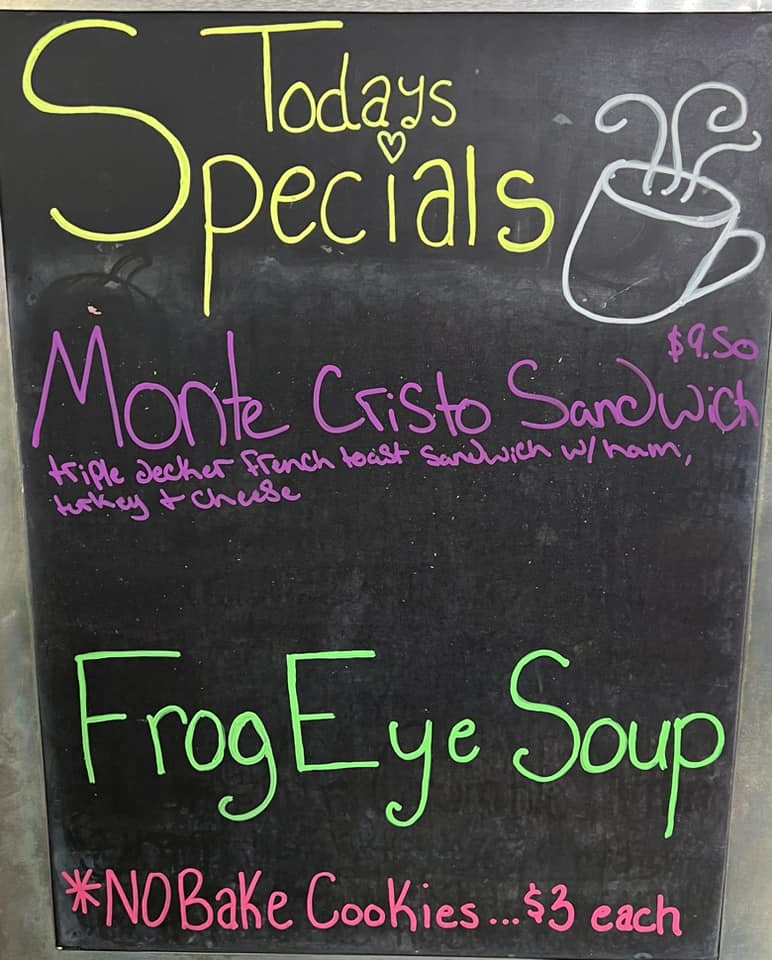 Todays
Specials
$9.50
Monte Cristo Sandwich
triple decker french toast sandwich w/ ham,
turkey + cheese
Frog Eye Soup
*NO BaKe CooKies...$3 each